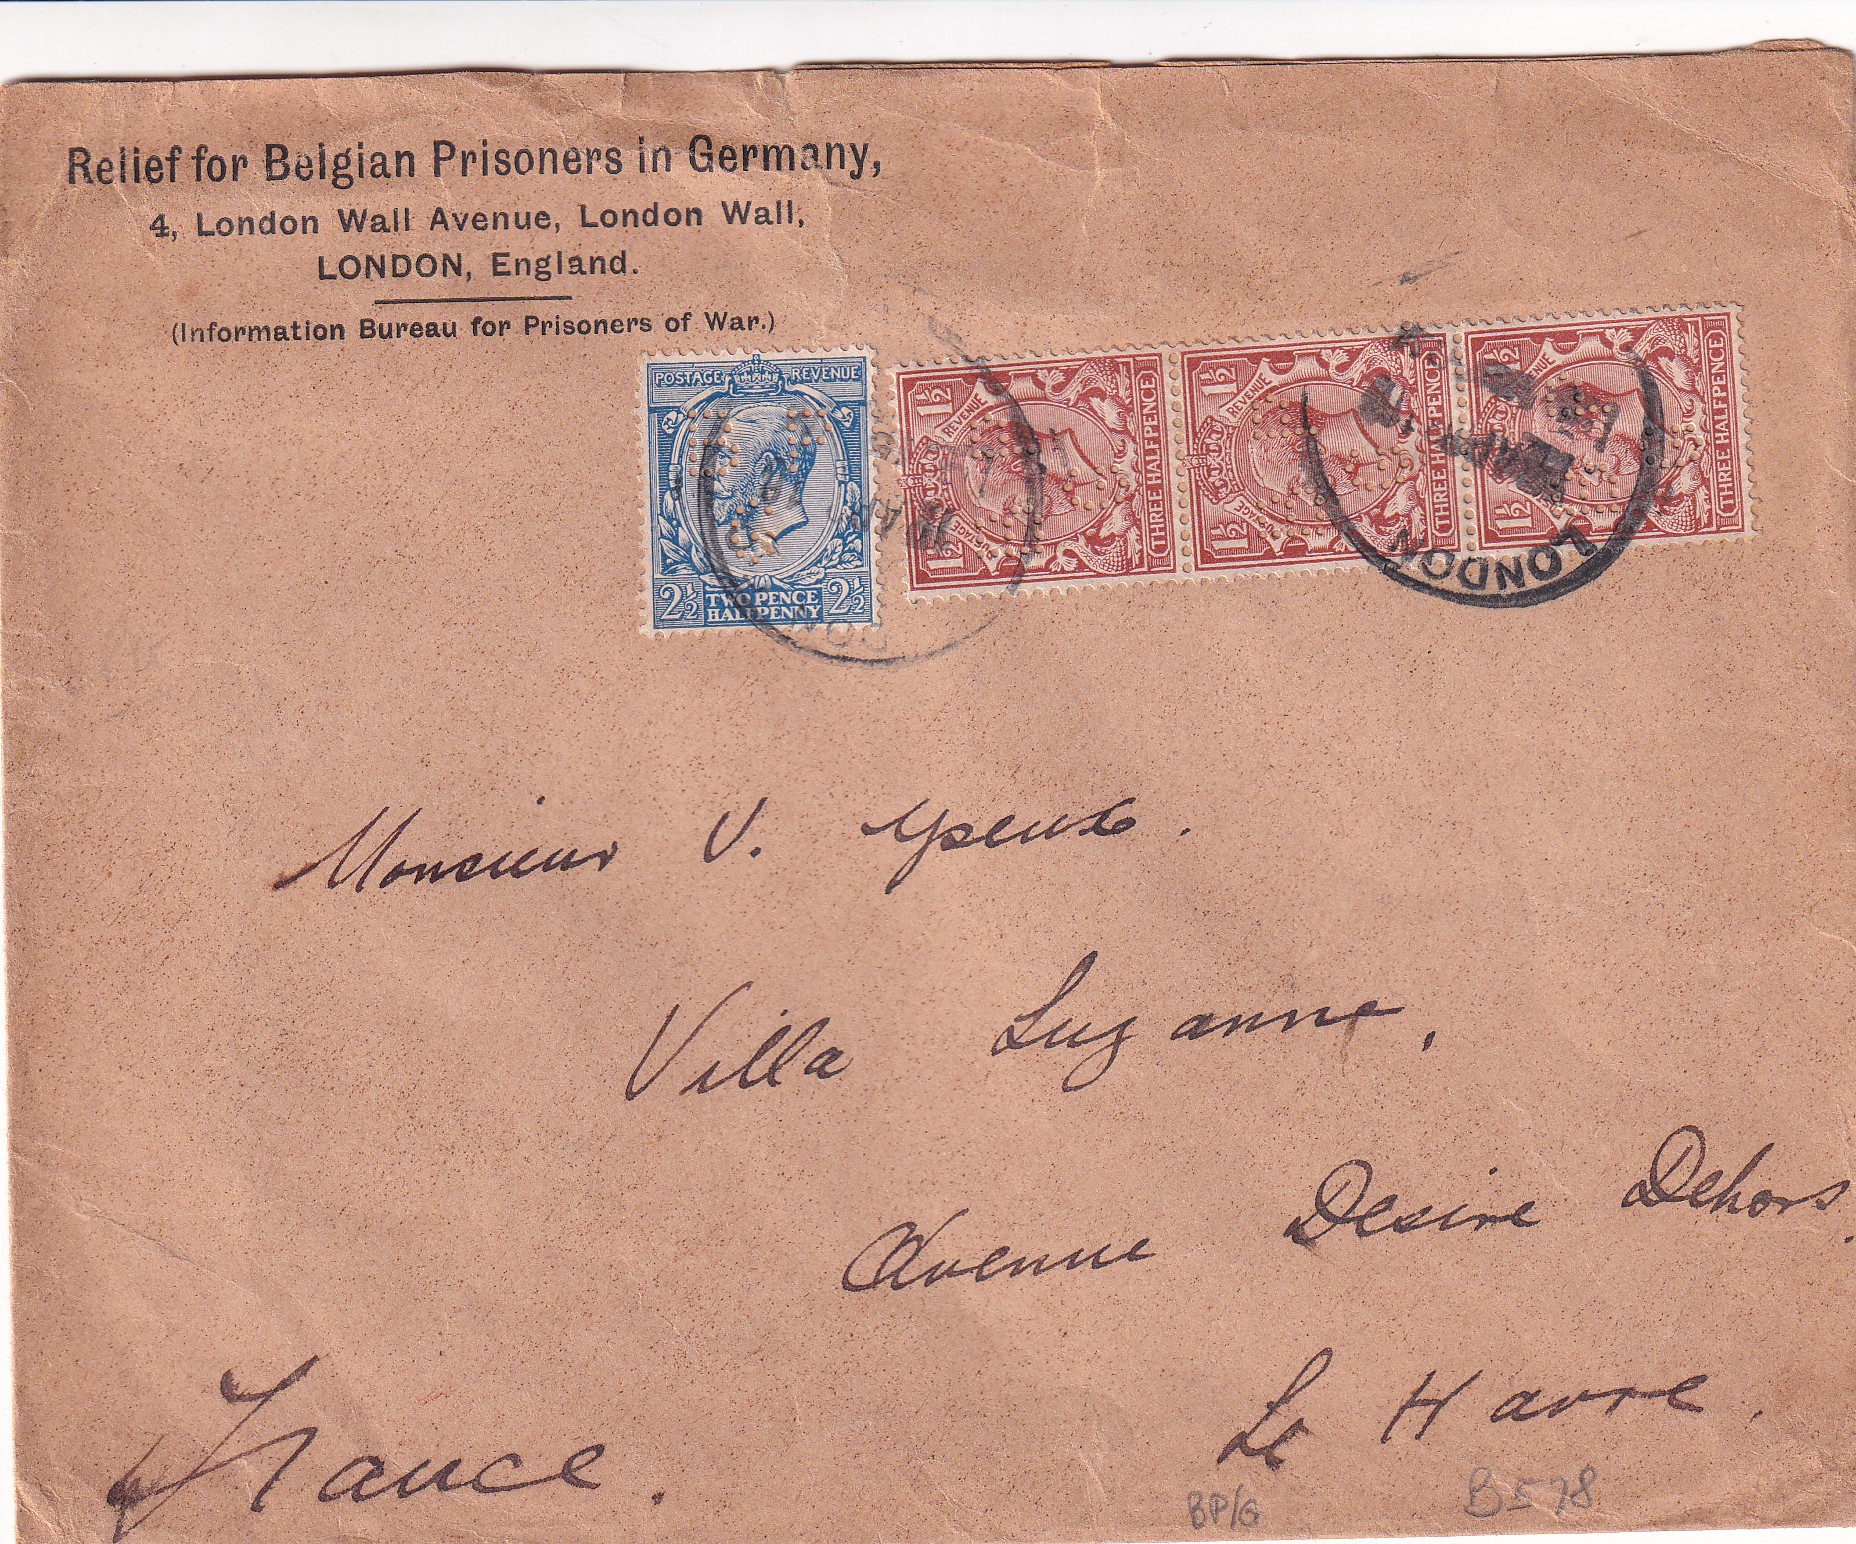 Relief for Belgian Prisoners in Germany,
4, London Wall Avenue, London Wall,
LONDON, England.
(Information Bureau for Prisoners of War.)
POSTAGE REVENUE
2½ TWO PENCE HALFPENNY 2½
1½ POSTAGE REVENUE 1½ THREE HALFPENCE
1½ POSTAGE REVENUE 1½ THREE HALFPENCE
1½ REVENUE 1½ THREE HALFPENCE
LONDON
Monsieur V.
Villa Suzanne,
Avenue Desire Dehors.
Le Havre.
France.
BP/G
B578